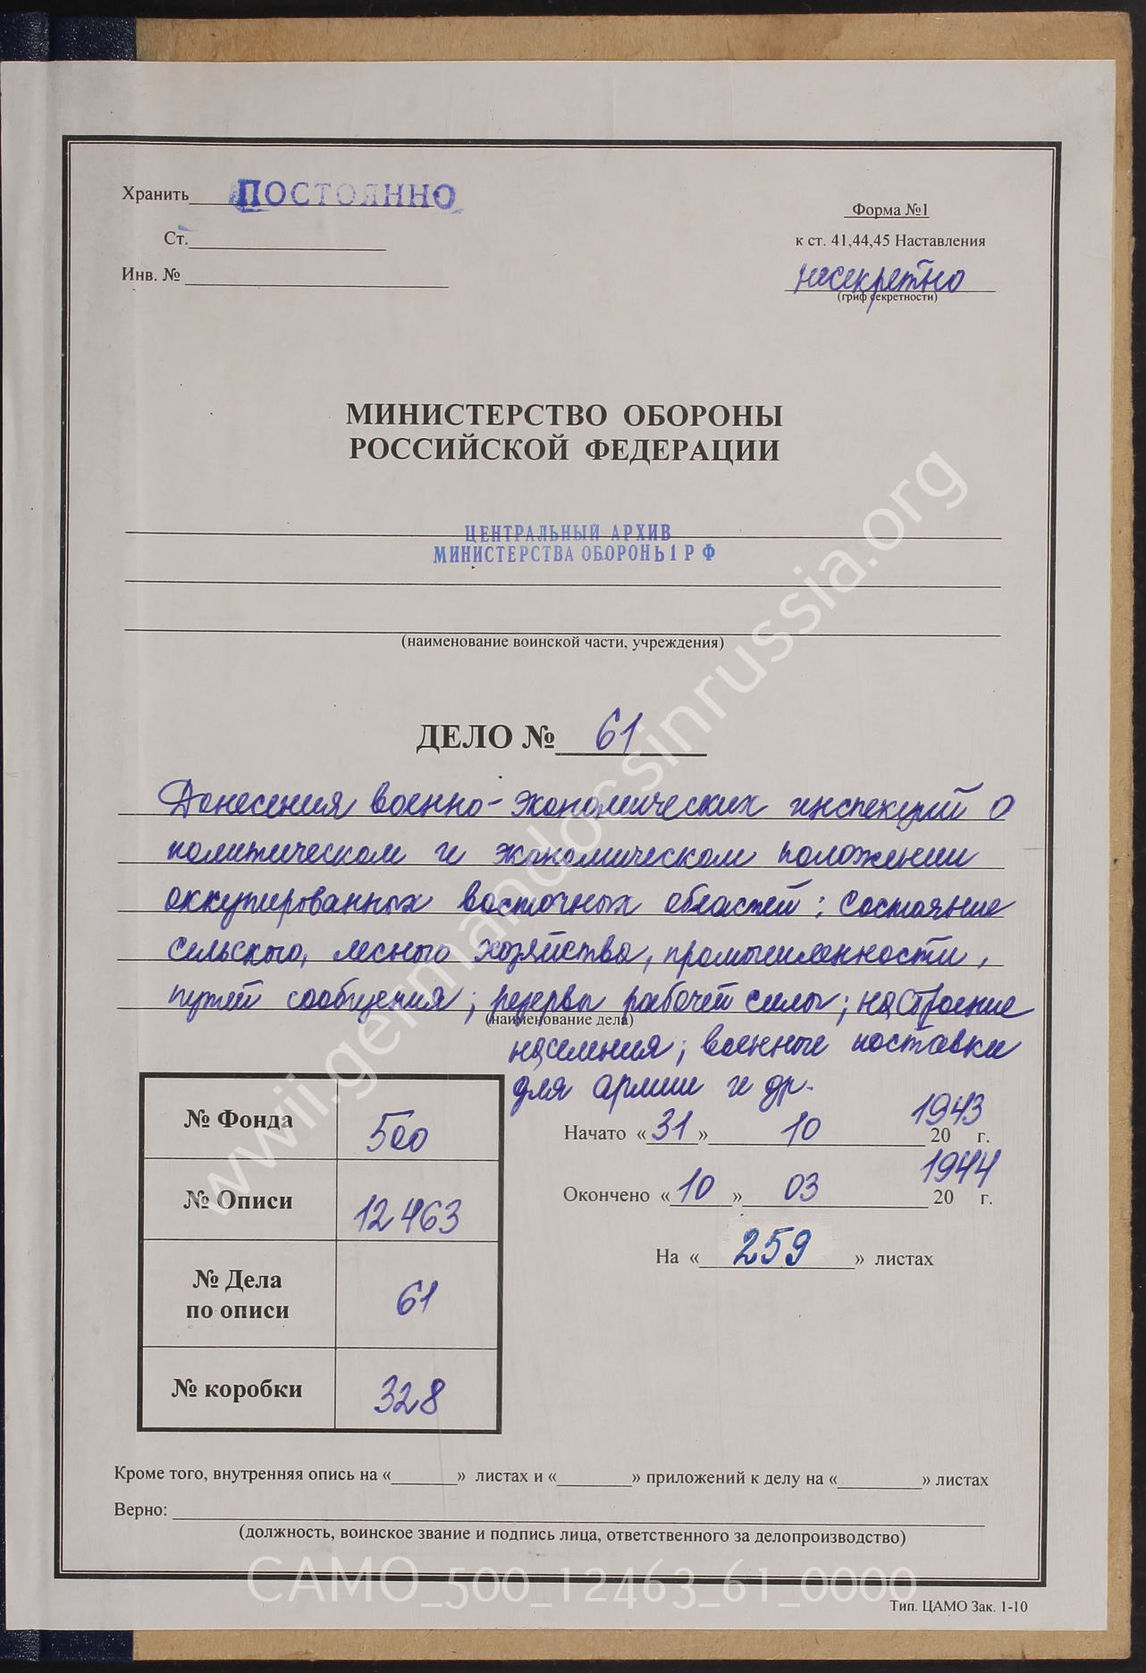 Хранить ПОСТОЯННО
Форма №1
Ст.
к ст. 41,44,45 Наставления
Инв. №
несекретно
(гриф секретности)
МИНИСТЕРСТВО ОБОРОНЫ
РОССИЙСКОЙ ФЕДЕРАЦИИ
ЦЕНТРАЛЬНЫЙ АРХИВ
МИНИСТЕРСТВА ОБОРОНЫ РФ
(наименование воинской части, учреждения)
ДЕЛО № 61
Донесения военно-экономических инспекций о
политическом и экономическом положении
оккупированных восточных областей: состояние
сельского, лесного хозяйства, промышленности,
путей сообщения; резервы рабочей силы; настроение
(наименование дела)
населения; военные поставки
для армии и др.
№ Фонда 500
№ Описи 12463
№ Дела
по описи 61
№ коробки 328
Начато «31» 10 1943
20 г.
Окончено «10» 03 1944
20 г.
На «259» листах
Кроме того, внутренняя опись на «» листах и «» приложений к делу на «» листах
Верно:
(должность, воинское звание и подпись лица, ответственного за делопроизводство)
Тип. ЦАМО Зак. 1-10
CAMO_500_12463_61_0000
wwii.germandocsinrussia.org